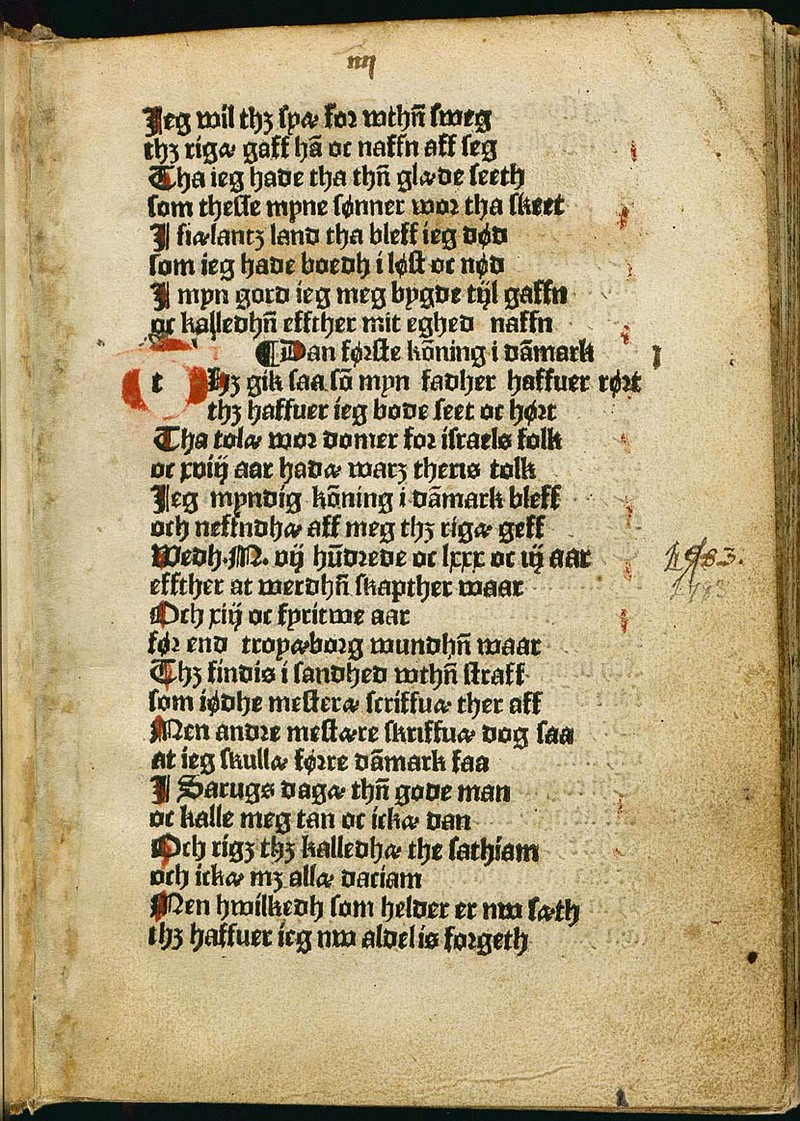 iiij
Jeg wil thꝫ spæ for wthn̄ sweg
thꝫ rigæ gaff hā oc naffn aff seg
Tha ieg hade tha thn̄ glæde seeth
som theste myne sønner wor tha skeet
J siælantꝫ land tha bleff ieg død
som ieg hade boedh i løst oc nød
J myn gord ieg meg bygde tijl gaffn
oc kalledhn̄ effther mit eghed naffn
¶Dan første kōning i dāmark
t Hꝫ gik saa sō myn fadher haffuer rørt
thꝫ haffuer ieg bode seet oc hørt
Tha tolæ wor domer for israels folk
oc xviij aar hadæ warꝫ theris tolk
Jeg myndig kōning i dāmark bleff
och neffndhæ aff meg thꝫ rigæ geff
Wedh.M. vij hūdrede oc lxxx oc iij aar
effther at werdhn̄ skapther waar
Och xiij oc fyritwe aar
før end troyæborg wundhn̄ waar
Thꝫ findis i sandhed wthn̄ straff
som iødhe mesteræ scriffuæ ther aff
Men andre mestære skriffuæ dog saa
at ieg skullæ førre dāmark faa
J Sarugs dagæ thn̄ gode man
oc kalle meg tan oc ickæ dan
Och rigꝫ thꝫ kalledhæ the sathiam
och ickæ mꝫ allæ daciam
Men hwilkedh som helder er nw sæth
thꝫ haffuer ieg nw aldelis forgeth
1783.
1783